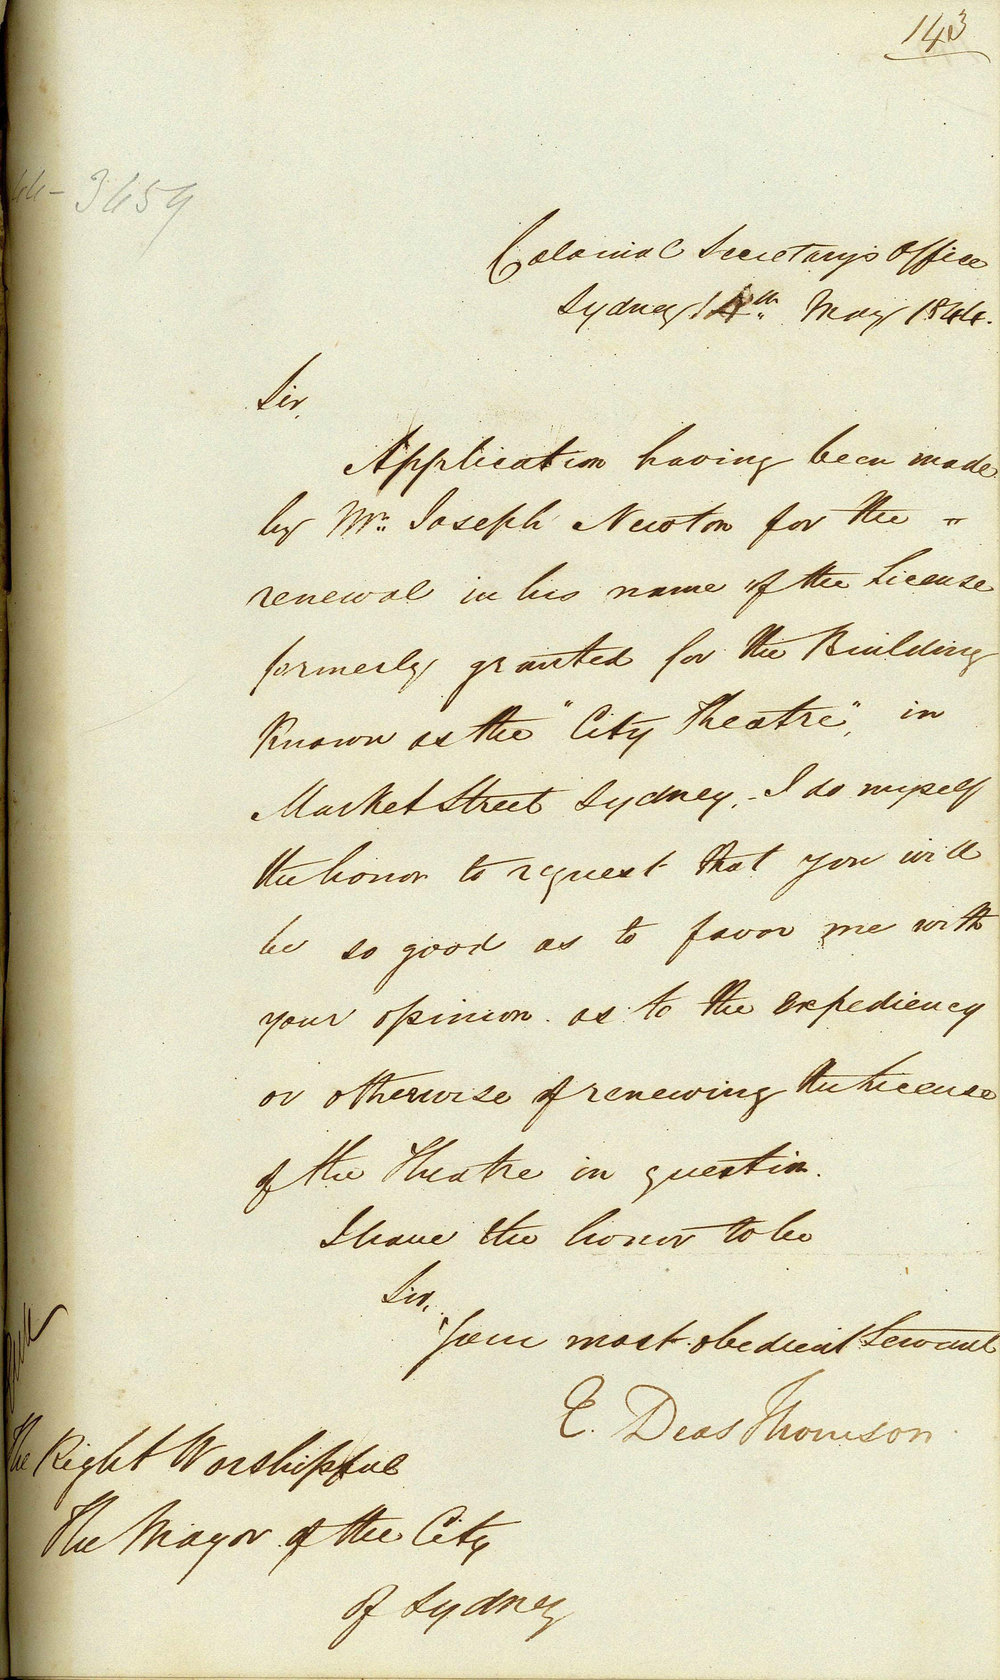 143
44-3659
Colonial Secretary's Office
Sydney 14th May 1844.
Sir,
Application having been made
by Mr. Joseph Newton for the "
renewal in his name of the License
formerly granted for the Building
Known as the "City Theatre", in
Market Street Sydney, - I do myself
the honor to request that you will
be so good as to favor me with
your opinion as to the expediency
or otherwise of renewing the License
of the Theatre in question.
I have the honor to be
Sir,
Your most obedient Servant
E. Deas Thomson
The Right Worshipful
The Mayor of the City
of Sydney